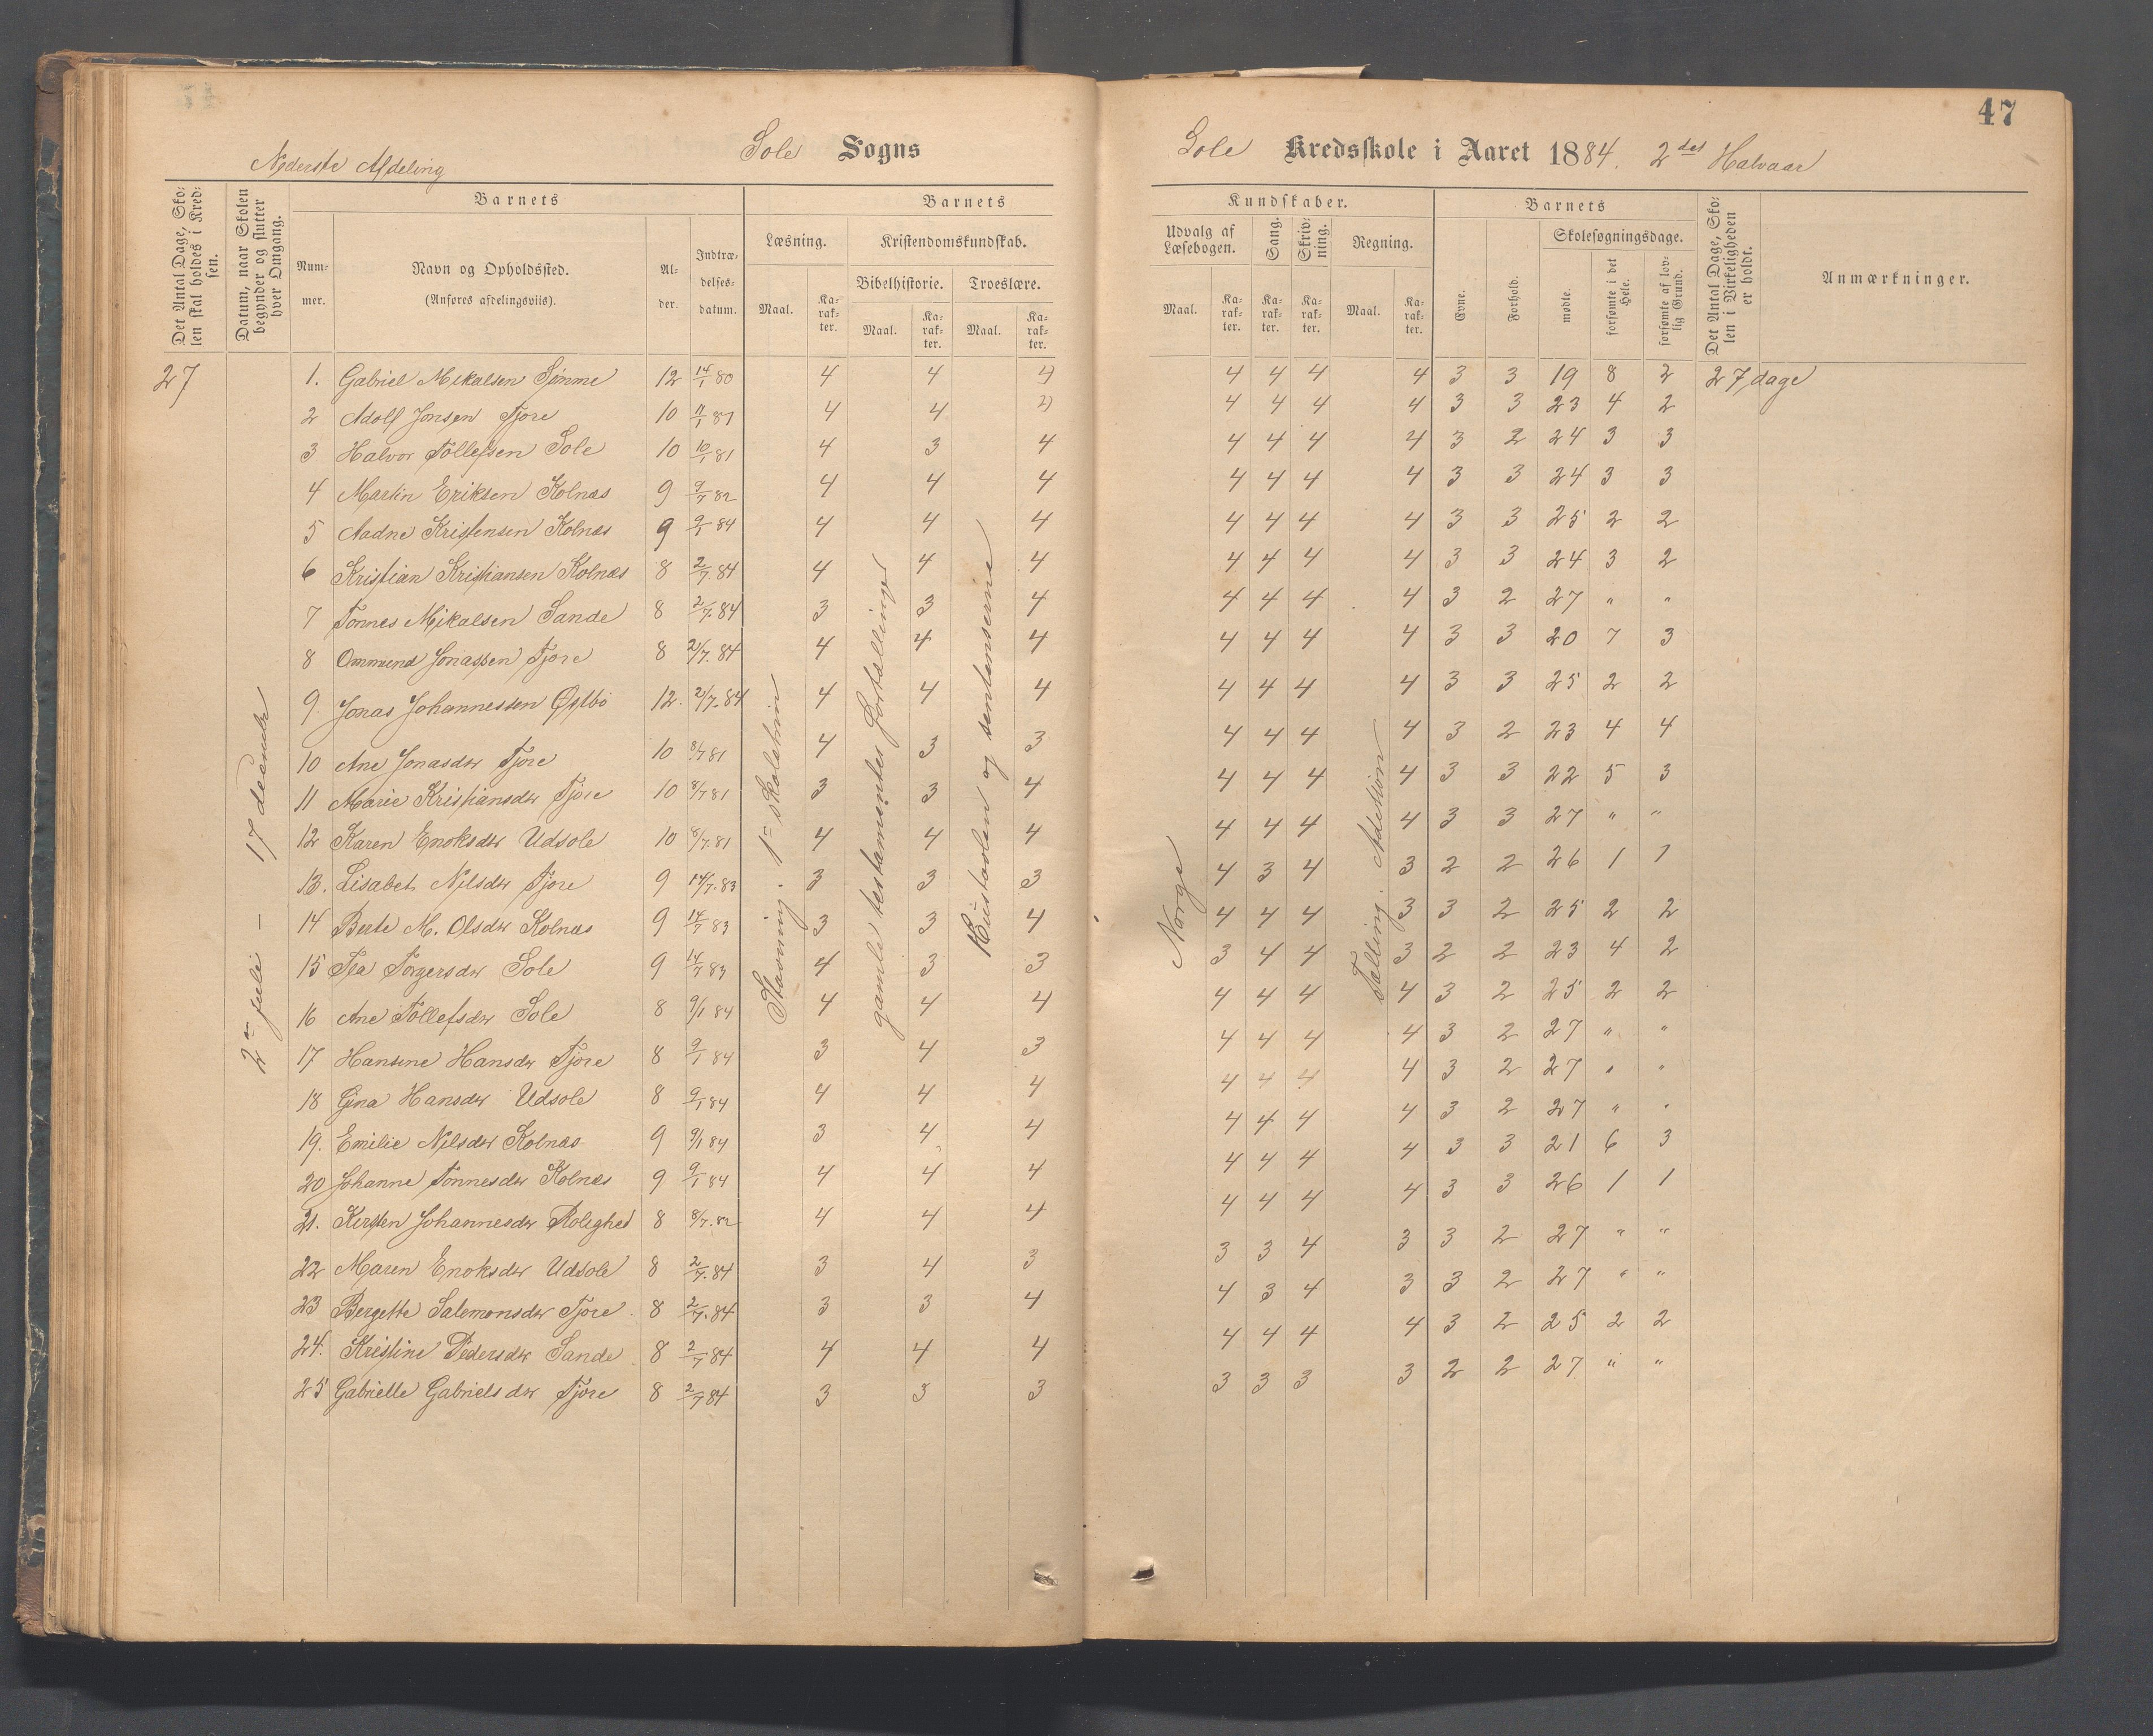 47
Sole Sogns
Nederste Afdeling
Sole Kredsskole i Aaret 1884. 2des Halvaar
Det Antal Dage, Skolen skal holdes i Kredsen.
Datum, naar Skolen begynder og slutter hver Omgang.
Barnets
Nummer.
Navn og Opholdssted.
(Anføres afdelingsviis).
Alder.
Indtrædelsesdatum.
Barnets
Læsning.
Maal. Karakter.
Kristendomskundskab.
Bibelhistorie. Troeslære.
Maal. Karakter. Maal. Karakter.
Kundskaber.
Udvalg af Læsebogen.
Maal. Karakter.
Sang. Karakter.
Skrivning. Karakter.
Regning.
Maal. Karakter.
Barnets
Evne. Forhold.
Skolesøgningsdage.
mødte. forsømte i det Hele. forsømte af lovlig Grund.
Det Antal Dage, Skolen i Virkeligheden er holdt.
Anmærkninger.
27
2en juli – 17 decembr
Stavning. 1ste skoletrin
gamle testamentes fortællinger
og sentenserne
Norge
Tælling. Addition
1. Gabriel Mikalsen Sømme 12 14/1 80 4 4 4 4 4 4 4 3 3 19 8 2 27 dage
2 Adolf Jonsen Tjore 10 11/1 81 4 4 4 4 4 4 3 3 23 4 2
3 Halvor Tollefsen Sole 10 10/1 81 4 3 4 4 4 4 4 3 2 24 3 3
4 Martin Eriksen Kolnæs 9 9/7 82 4 4 4 4 4 4 4 3 3 24 3 3
5 Aadne Kristensen Kolnæs 9 9/1 84 4 4 4 4 4 4 4 3 3 25 2 2
6 Kristian Kristiansen Kolnæs 8 2/7 84 4 4 4 4 4 4 4 3 3 24 3 2
7 Tønnes Mikalsen Sande 8 2/7. 84 3 3 4 4 4 4 4 3 2 27 " "
8 Ommund Jonassen Tjore 8 2/7. 84 4 4 4 4 4 4 4 3 3 20 7 3
9. Jonas Johannessen Østbø 12. 2/7. 84 4 4 4 4 4 4 4 3 3 25 2 2
10 Ane Jonasdtr Tjore 10 8/7 81 4 3 3 4 4 4 4 3 2 23 4 4
11 Marie Kristiansdtr Tjore 10 8/7 81 3 3 4 4 4 4 4 3 3 22 5 3
12 Karen Enoksdtr Udsole 10 8/7. 81 4 4 4 4 4 4 4 3 3 27 " "
13. Lisabet Nilsdtr Tjore 9 14/7. 83 3 3 3 4 3 4 3 2 2 26 1 1
14 Berte M. Olsdtr Kolnæs 9 14/7 83 3 3 4 4 4 4 3 3 2 25 2 2
15 Tea Torgersdtr Sole 9 14/7 83 4 3 3 3 4 4 3 2 2 23 4 2
16 Ane Tollefsdtr Sole 8 9/1 84 4 4 4 4 4 4 4 3 2 25 2 2
17 Hansine Hansdtr Tjore 8 9/1 84 3 4 3 4 4 4 4 3 2 27 " "
18 Gina Hansdtr Udsole 8 9/1 84 4 4 4 4 4 4 4 3 2 27 " "
19. Emilie Nilsdtr Kolnæs 9 9/1 84 3 4 4 4 4 4 4 3 2 27 " "
20 Johanne Tønnesdtr Kolnæs 9 9/1 84 4 4 4 4 4 4 4 3 3 21 6 3
21. Kirsten Johannesdtr Rolighed 8 8/7. 82 4 4 4 4 4 4 4 3 3 26 1 1
22 Maren Enoksdtr Udsole 8 2/7. 84 3 4 3 3 3 4 3 3 2 27 " "
23 Bergette Salemonsdtr Tjore. 8 2/7. 84 3 3 4 4 3 4 3 3 2 27 " "
24. Kristine Pedersdtr Sande 8 2/7 84 4 4 4 4 4 4 4 3 2 25 2 2
25 Gabrielle Gabrielsdtr Tjore 8 2/7 84 3 3 3 3 3 3 3 2 2 27 " "